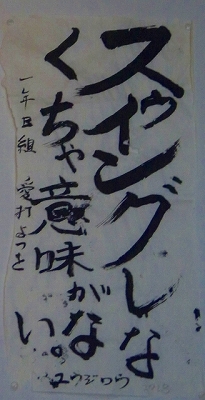 スウィングしな
くちゃ意味がな
い。
一年B組 愛打よつを
ユウジロウ